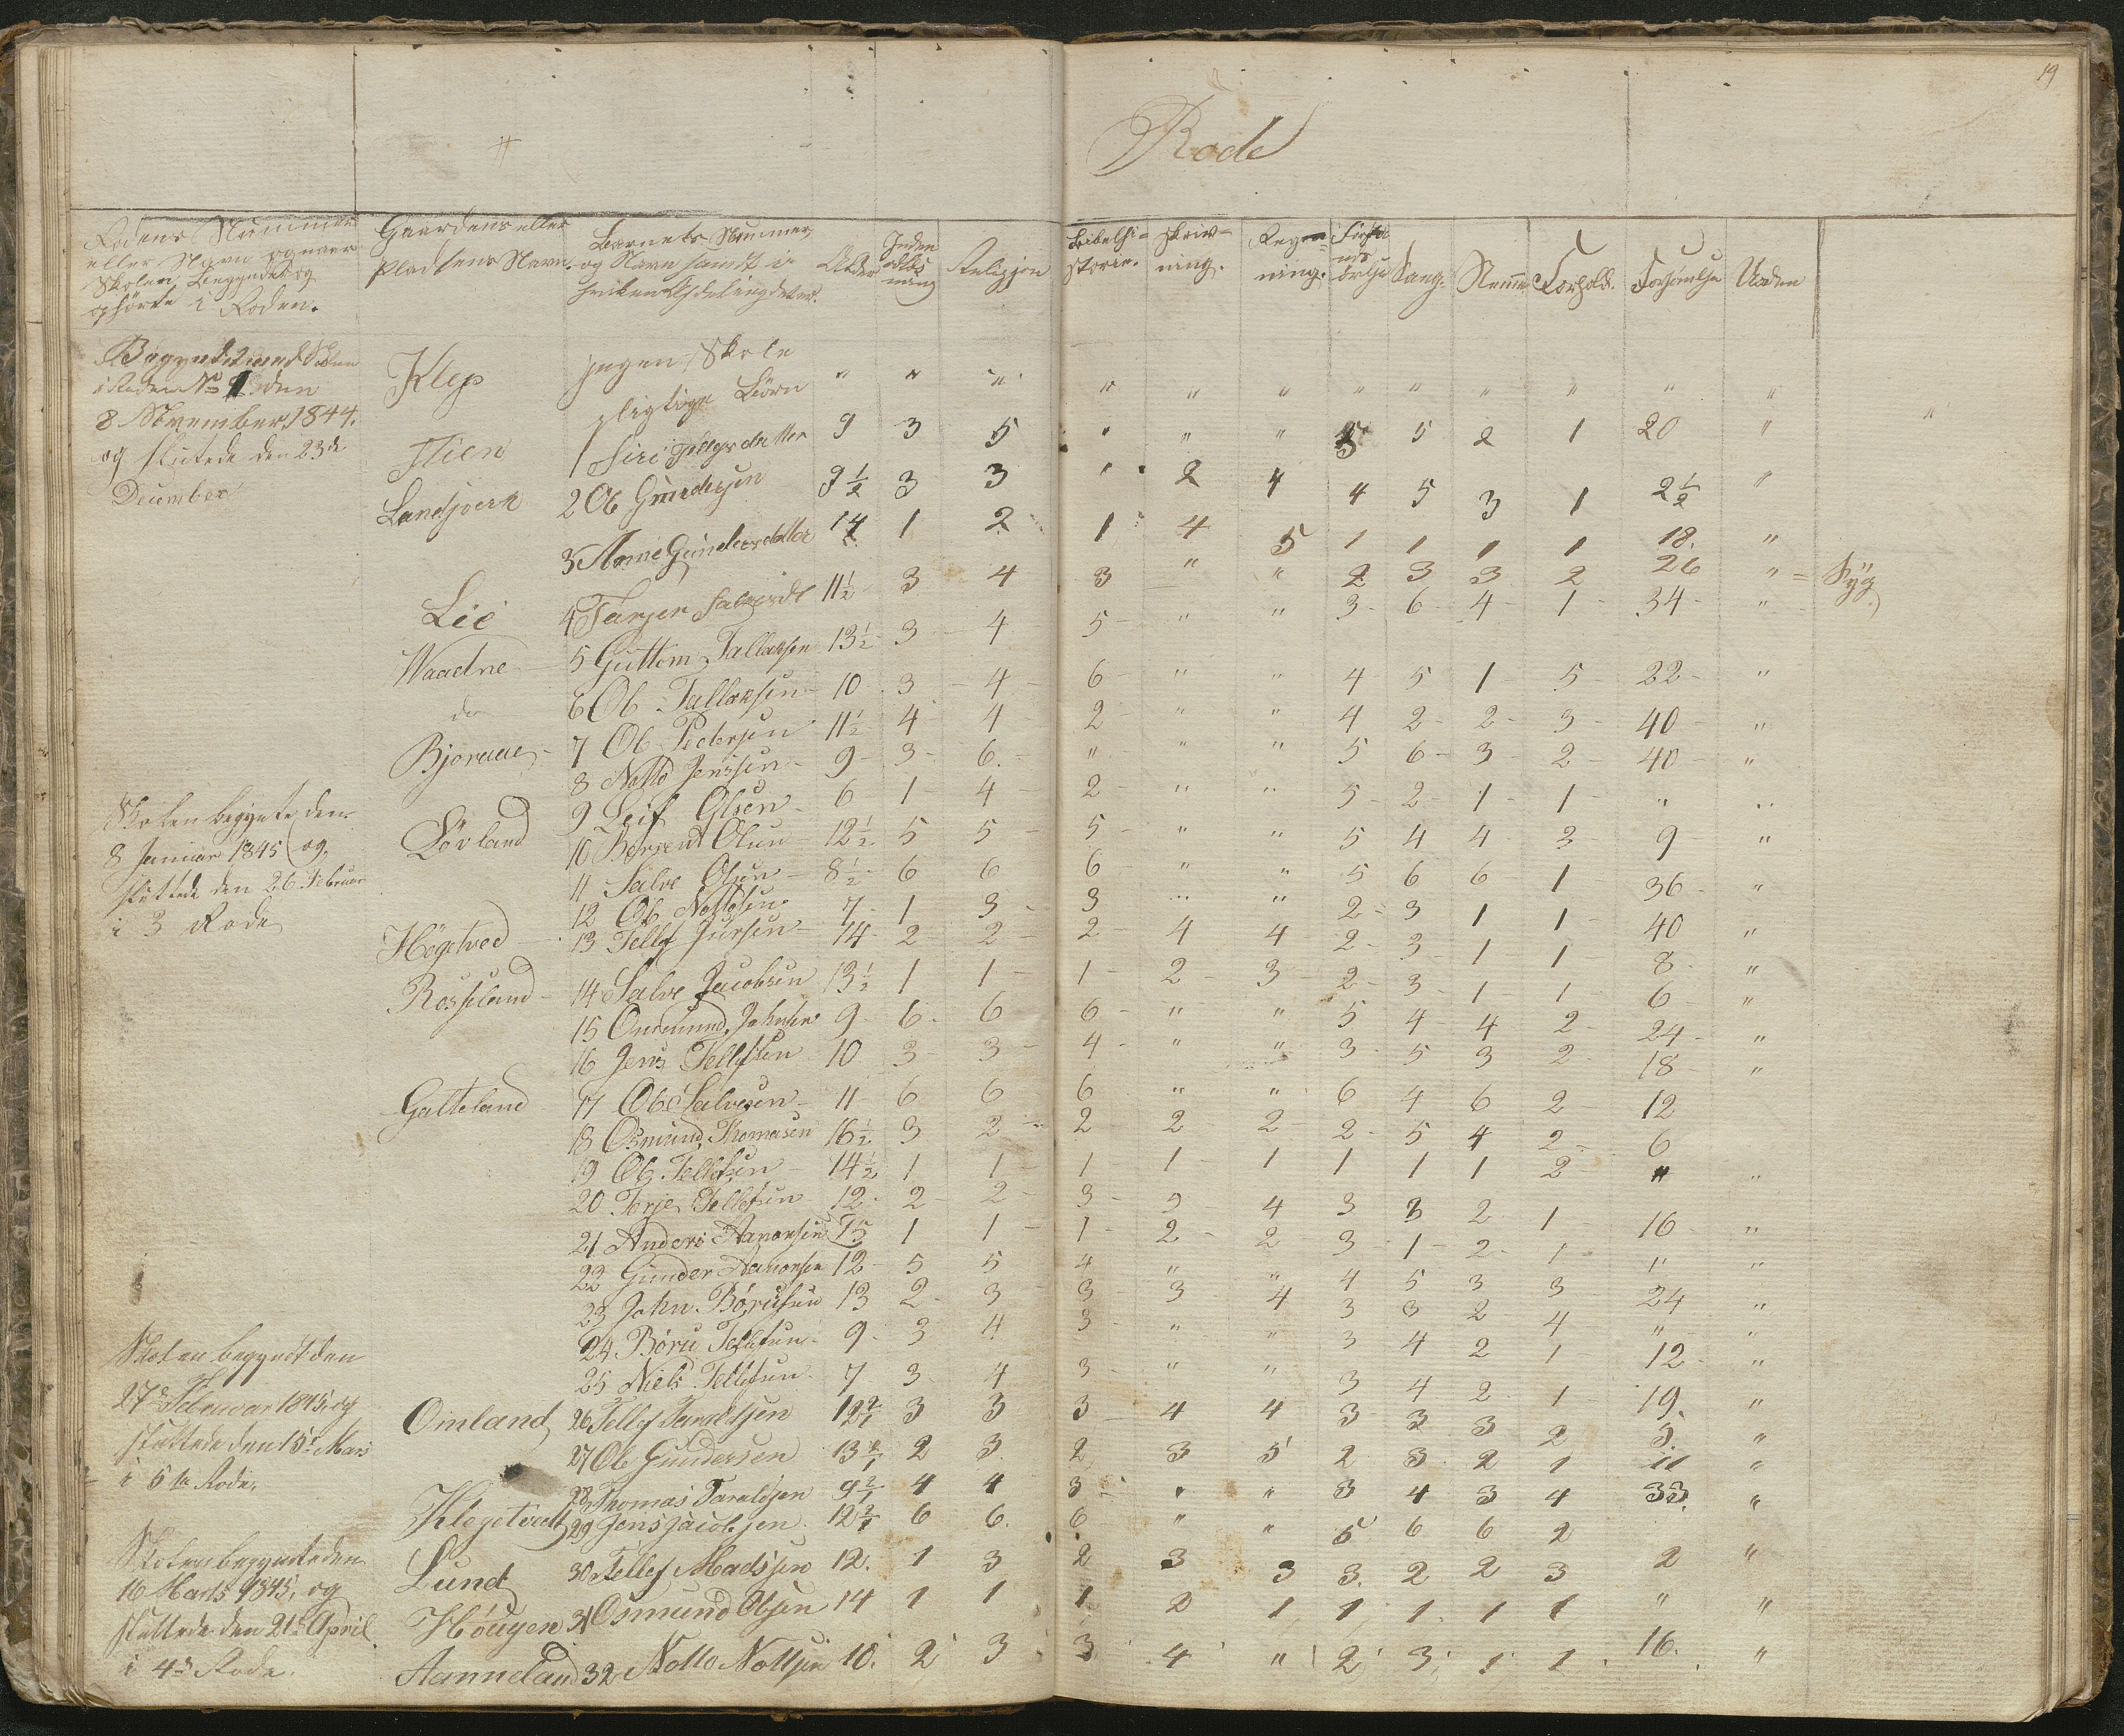 19
Rode
Rodens Nummer
eller Navn og naar
Skolen Begyndte og
ophørte i Roden.
Gaardens eller
Pladsens Navn.
Barnets Nummer,
og Navn samt i
Alder
Inden
ning
Religjon
Bibelhi=
storie.
Skriv=
ning.
Reg=
ning.
Sang.
Nemme
Forhold.
Forsømelse
Uorden
Begyndt med Skolen
i Roden No 1 den
8 November 1844.
og sluttede den 23de
December
Klep ingen Skole
pligtige Börn " " " " " " " " " " " "
Flien 1 Siri 9 3 5 " " " 5 5 2 1 20 "
Landsverk 2 Ole Gundersen 9½ 3 3 " 2 4 4 5 3 1 2½ "
3 Anne Gundersdatter 14 1 2 1 4 5 1 1 1 1 18. "
Lie 4 Tarjer 11½ 3 4 3 " " 2 3 3 2 26 " = Syg
Waadne 5 Guttom Tallaksen 13½ 3 4 5 " " 3 6 4 1 34 "
do 6 Ole Tallaksen 10 3 4 6 " " 4 5 1 5 22 "
Bjoraae 7 Ole Pedersen 11½ 4 4 2 " " 4 2 2 3 40 "
8 Notto Jensen 9 3 6 " " " 5 6 3 2 40 "
Skolen begynte den
8 Januar 1845 og
sluttede den 26 Februar
i 3 Rode
Lövland 9 Leif Olsen 6 1 4 2 " " 5 2 1 1 " "
10 Olsen 12½ 5 5 5 " " 5 4 4 3 9 "
11 Salve Olsen 8½ 6 6 6 " " 5 6 6 1 36 "
12 Ole Nottosen 7 1 3 3 " " 2 3 1 1 40 "
Högetved 13 Tellef Jensen 14 2 2 2 4 4 2 3 1 1 8 "
Rosseland 14 Salve Jacobsen 13½ 1 1 1 2 3 2 3 1 1 6 "
15 Omund 9 6 6 6 " " 5 4 4 2 24 "
16 Jens Tellefsen 10 3 3 4 " " 3 5 3 2 18 "
Galteland 17 Ole Salvesen 11 6 6 6 " " 6 4 6 2 12
18 Osmund Thomasen 16½ 3 2 2 2 2 2 5 4 2 6
19 Ole Tellefsen 14½ 1 1 1 1 1 1 1 1 2 " "
20 Terje Tellefsen 12 2 2 3 3 4 3 3 2 1 16 "
21 Anders Aanonsen 15 1 1 1 2 2 3 1 2 1 " "
22 Gunder Aanonsen 12 5 5 4 " " 4 5 3 3 24 "
23 John Börusen 13 2 3 3 3 4 3 3 2 4 " "
24 Böru Tellefsen 9 3 4 3 " " 3 4 2 1 12 "
25 Niels Tellefsen 7 3 4 3 " " 3 4 2 1 19. "
Skolen begyndt den
27de Februar 1845 og
sluttede den 15de Mars
i 6te Rode.
Omland 26 Tellef Taraldsen 12½ 3 3 3 4 4 3 3 3 2 5. "
27 Ole Gundersen 13½ 2 3 2 3 5 2 3 2 1 11 "
28 Thomas Taraldsen 9½ 4 4 3 " " 3 4 3 4 33. "
Klegetvedt 29 Jens Jacobsen 12½ 6 6. 6 " " 5 6 6 2 "
Skolen begyndte den
16 Marts 1845, og
sluttede den 21de April
i 4de Rode.
Lund 30 Tellef Madssen 12. 1 3 2 3 3 3. 2 2 3 2 "
Höugen 31 Osmund Olsen 14 1 1 1 2 1 1 1 1 1 " "
Aanneland 32 Notto Nottsen 10. 2 3 3 4 " 2 3 1 1 16. "